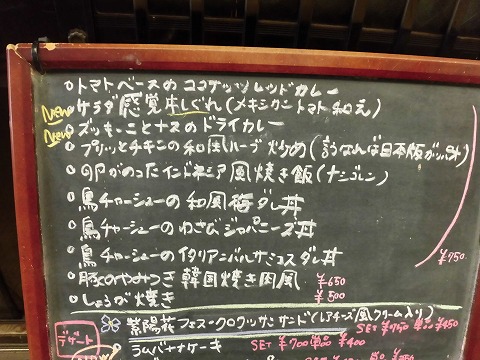 トマトベースのココナッツレッドカレー
New サラダ感覚牛しぐれ(メキシカントマト和え)
New ズッキーニとナスのドライカレー
プリッとチキンの和風ハーブ炒め(言うなれば日本版ガパオ)
卵がのったインドネシア風焼き飯(ナシゴレン)
鳥チャーシューの和風梅ダレ丼
鳥チャーシューのわさびジャパニーズ丼
鳥チャーシューのイタリアンバルサミコスダレ丼 ¥750
豚のやみつき韓国焼き肉風 ¥650
しょうが焼き ¥500
デザート
紫陽花フェスークロックッサンサンド(レアチーズ風クリーム入り)
SET ¥750 単品 ¥450
バナナケーキ SET ¥700 単品 ¥400